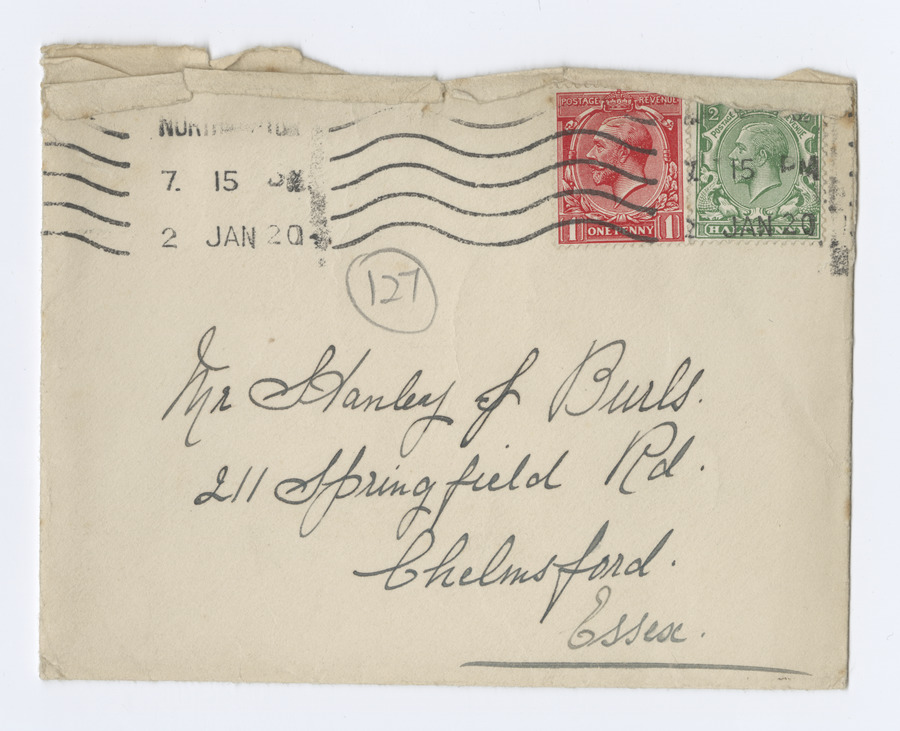 7. 15 PM
2 JAN 20
POSTAGE REVENUE
1 ONE PENNY 1
2
POSTAGE
HALFPENNY
15 PM
2 JAN 20
127
Mr Stanley J Burls.
211 Springfield Rd.
Chelmsford.
Essex.